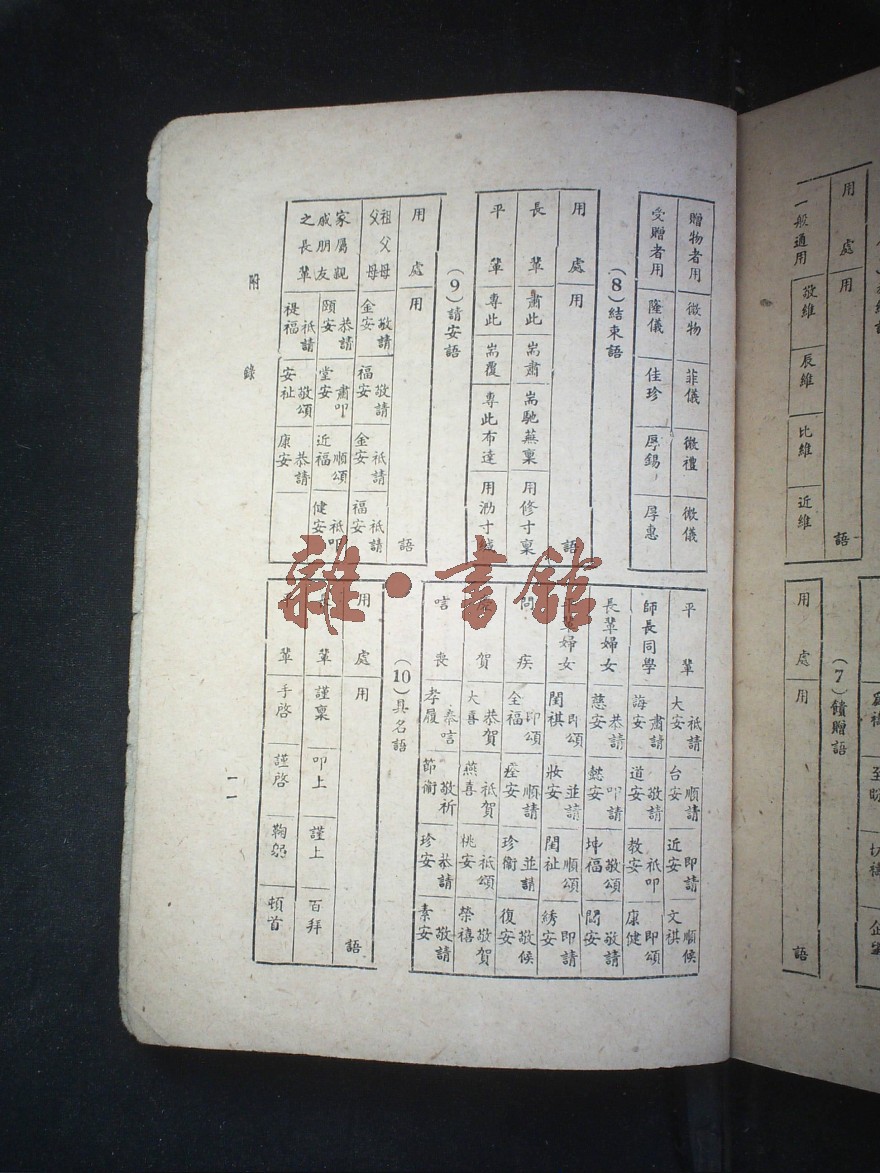 用處 用語
一般通用 敬維 辰維 比維 近維
(7)餽贈語
用處 用語
贈物者用 微物 菲儀 微禮 微儀
受贈者用 隆儀 佳珍 厚錫 厚惠
(8)結束語
用處 用語
長輩 肅此 耑肅 耑馳蕪稟 用修寸稟
平輩 專此 耑覆 專此布達 用泐寸
(9)請安語
用處 用語
祖父母 父母 敬請金安 敬請福安 祇請金安 祇請福安
家屬親戚朋友之長輩 恭請頤安 肅叩堂安 順頌近福 祇叩健安
祇請禔福 敬頌安祉 恭請康安
平輩 祇請大安 順請台安 即請近安 順候文祺
師長同學 肅請誨安 敬請道安 祇叩教安 即頌康健
長輩婦女 恭請慈安 叩請懿安 敬頌坤福 敬請閫安
婦女 即頌閨祺 並請妝安 順頌閨祉 即請綉安
問疾 即頌全福 順請痊安 並請珍衛 敬候復安
賀 恭賀大喜 祇賀燕喜 祇頌桃安 敬賀榮禧
唁喪 奉唁孝履 敬祈節衛 恭請珍安 敬請素安
(10)具名語
用處 用語
輩 謹稟 叩上 謹上 百拜
輩 手啓 謹啓 鞠躬 頓首
附錄
一一
雜·書館